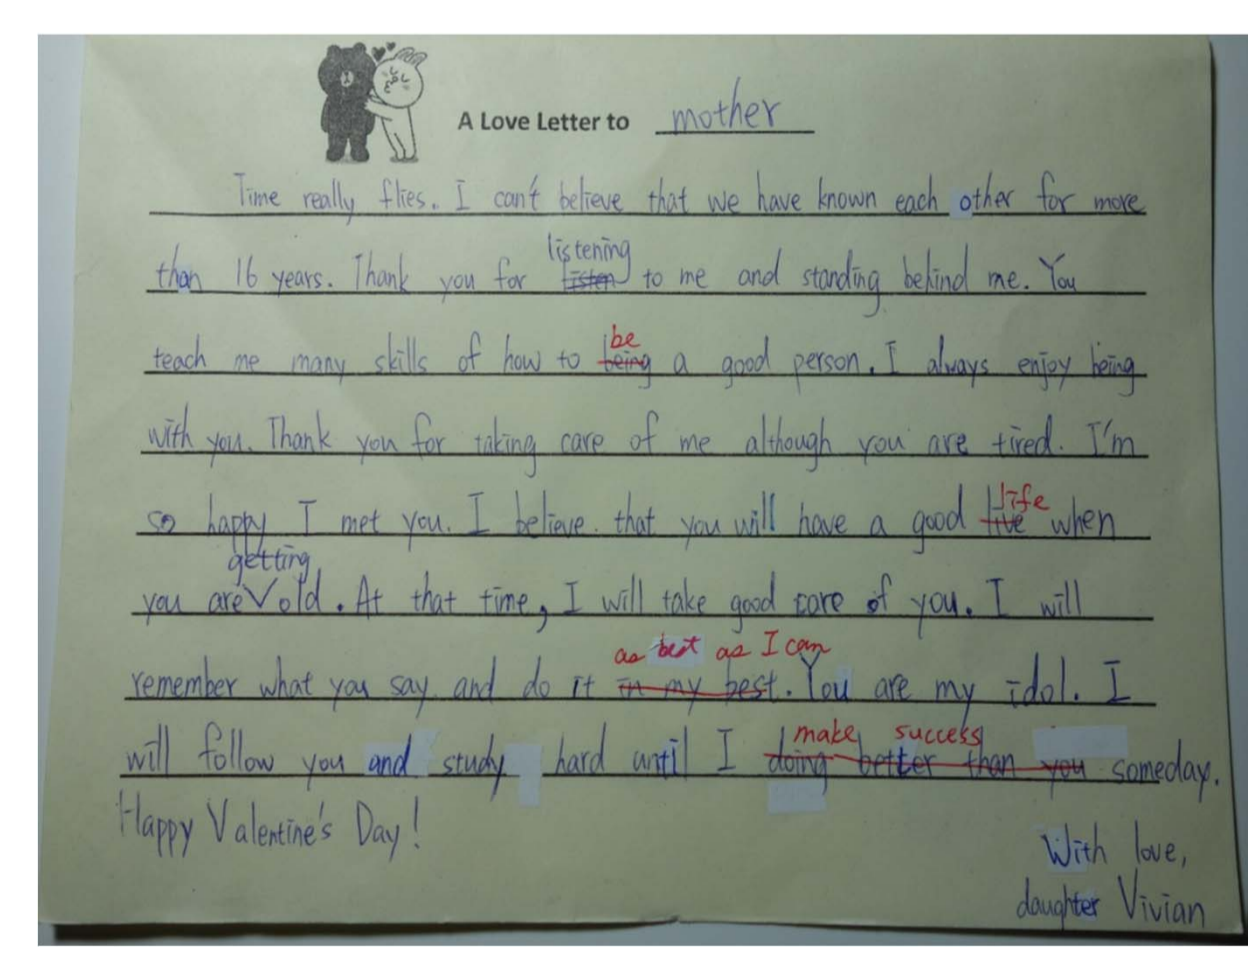 A Love Letter to mother
Time really flies. I can't believe that we have known each other for more
listening
than 16 years. Thank you for listen to me and standing behind me. You
be
teach me many skills of how to being a good person. I always enjoy being
with you. Thank you for taking care of me although you are tired. I'm
life
so happy I met you. I believe that you will have a good live when
getting
you are old. At that time, I will take good care of you. I will
as best as I can
remember what you say and do it in my best. You are my idol. I
make success
will follow you and study hard until I doing better than you someday.
Happy Valentine's Day!
With love,
daughter Vivian